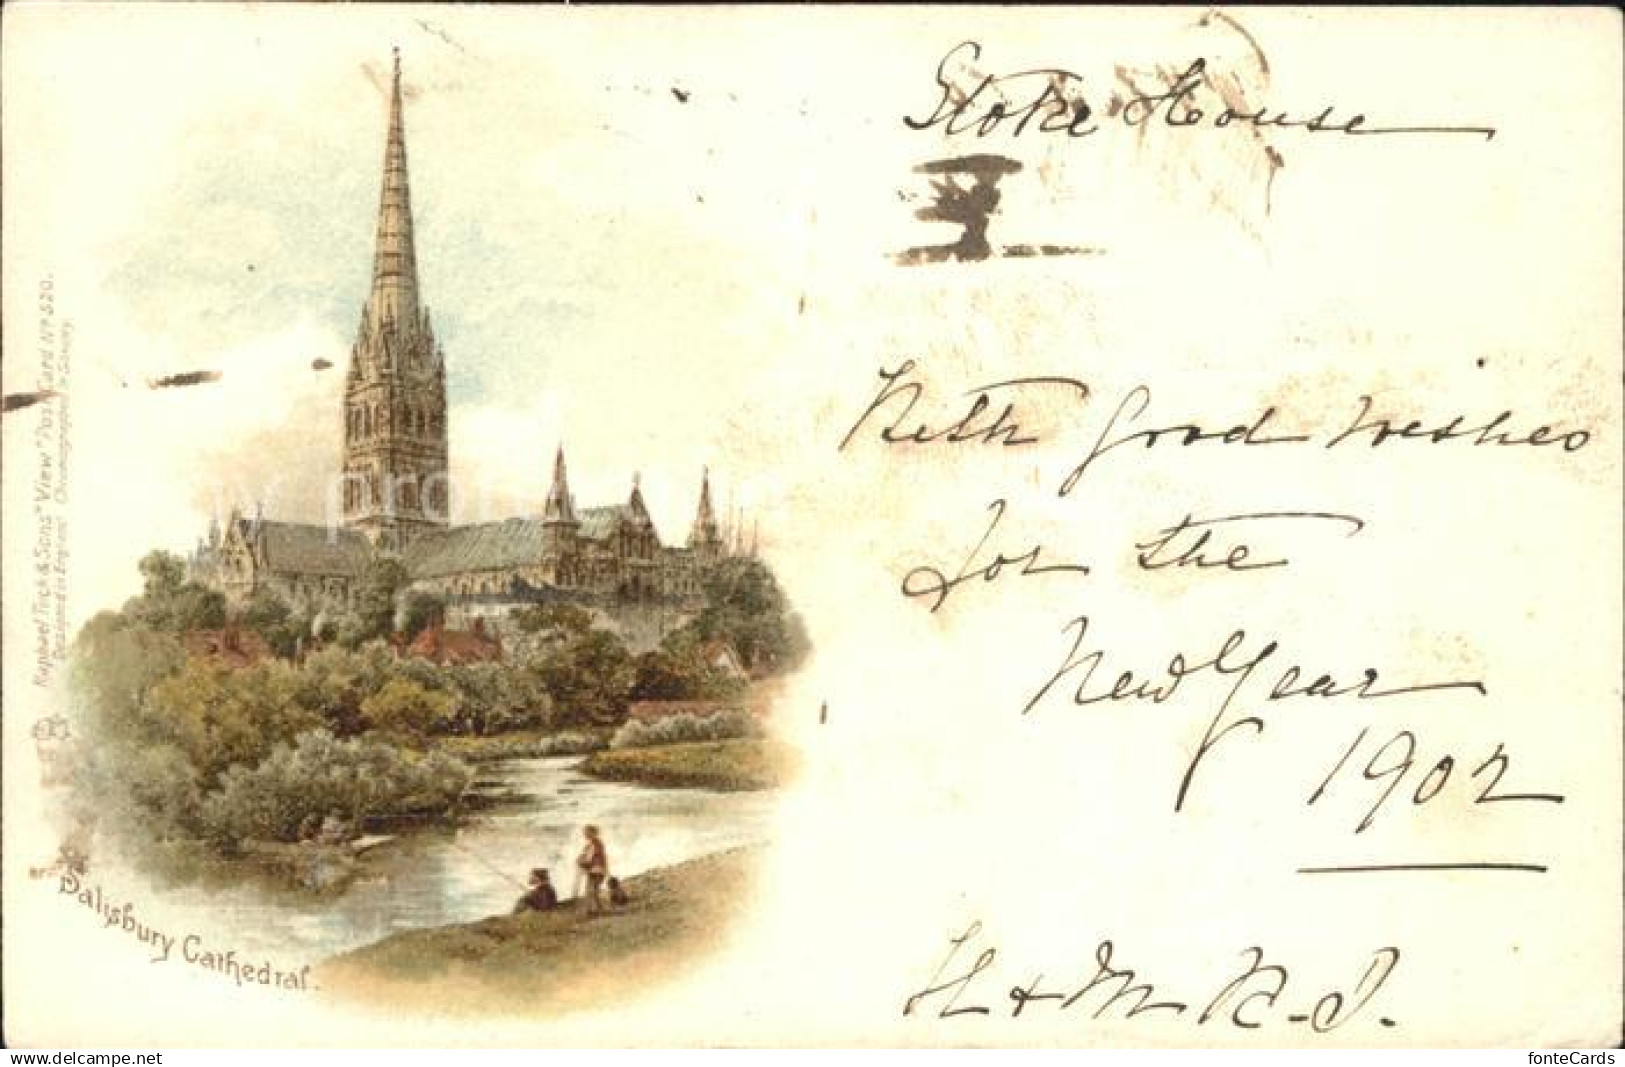 Stoke House
With good wishes
for the
New Year
1902
H & M
Raphael Tuck & Sons' "View" Postcard Nº 520.
Designed in England Chromographed in Saxony
Salisbury Cathedral.
fonteCards
www.delcampe.net